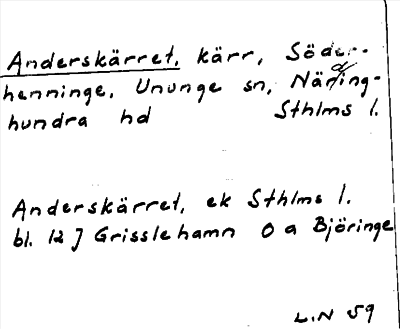 Anderskärret, kärr, Söder-
henninge, Ununge sn, Närding-
hundra hd Sthlms l.
Anderskärret, ek Sthlms l.
bl. 12 J Grisslehamn O a Björinge
L.N 59